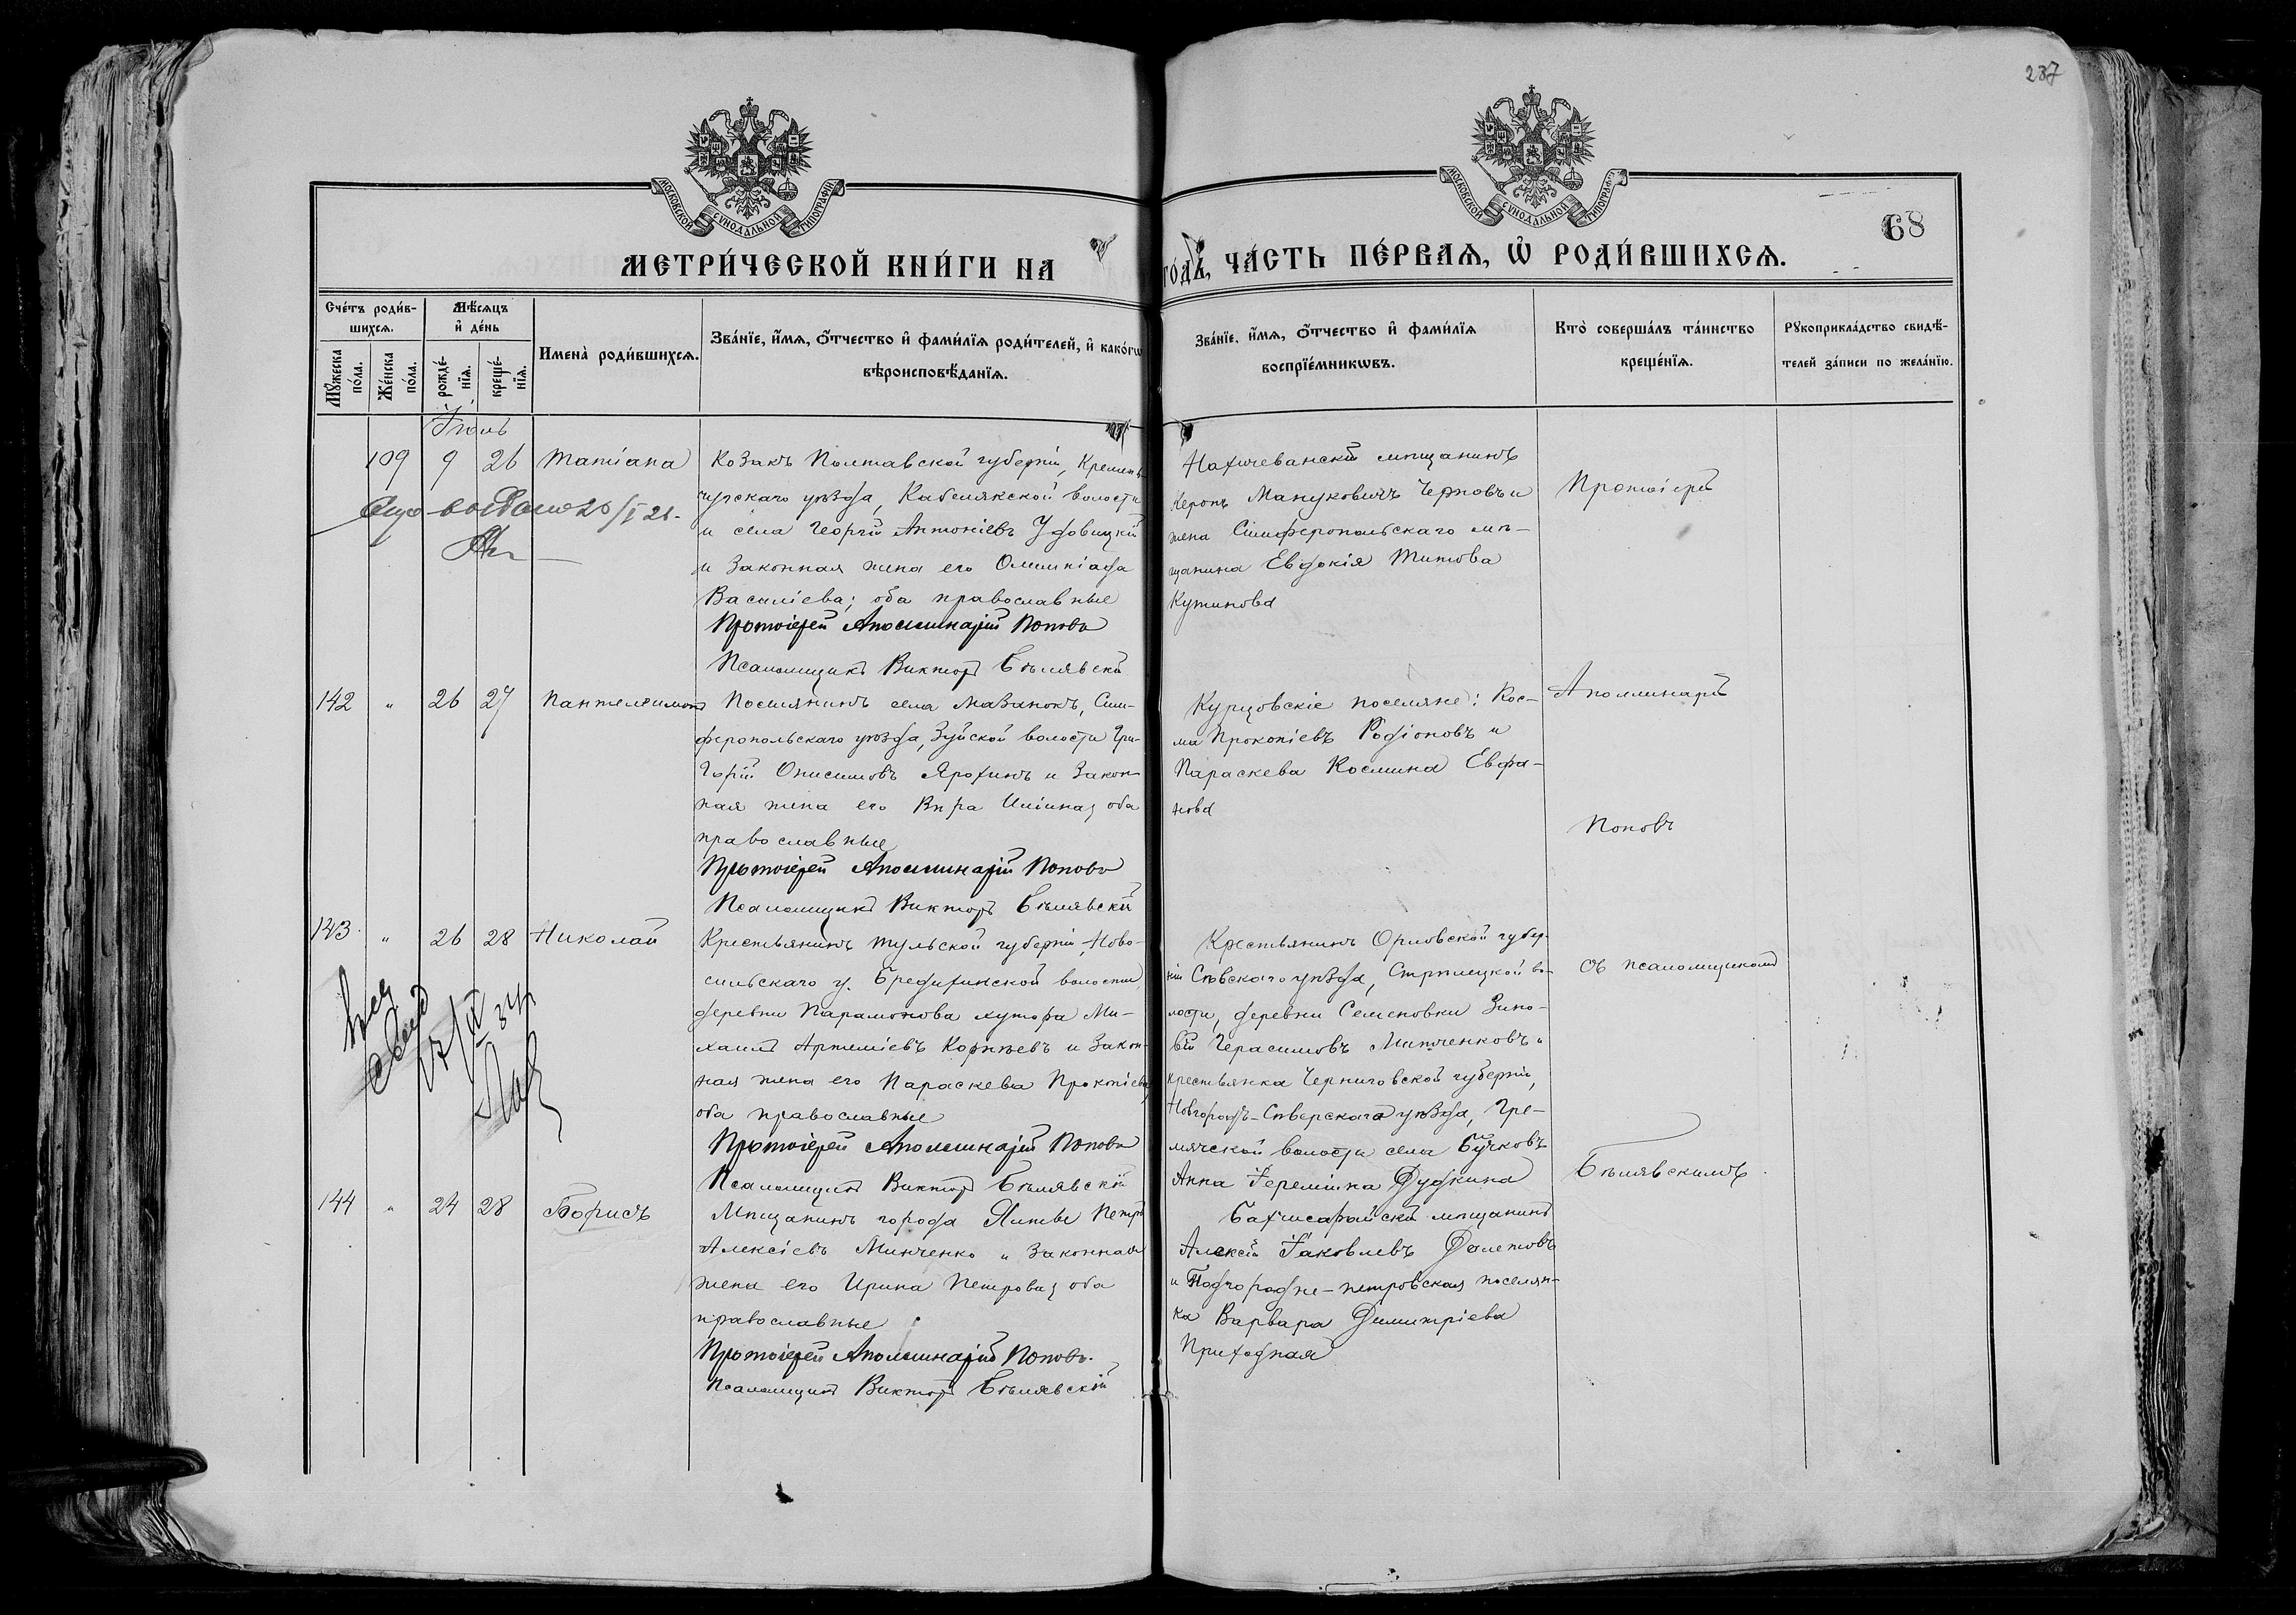 287
МОСКОВСКОЙ СУНОДАЛЬНОЙ ТИПОГРАФІИ
МОСКОВСКОЙ СУНОДАЛЬНОЙ ТИПОГРАФІИ
68
МЕТРИ́ЧЕСКОЙ КНИ́ГИ НА
ГО́ДЪ, ЧА́СТЬ ПЕ́РВАѦ, Ѡ҆ РОДИ́ВШИХСѦ.
Сче́тъ роди́в-
шихсѧ.
Мꙋ́жеска по́ла.
Же́нска по́ла.
Мѣ́сѧцъ и҆ де́нь
рожде́-
нїѧ.
креще́-
нїѧ.
Имена̀ роди́вшихсѧ.
Зва́нїе, и҆́мѧ, ѻ҆́тчество и҆ фами́лїѧ роди́телей, и҆ како́гѡ
вѣроисповѣ́данїѧ.
Зва́нїе, и҆́мѧ, ѻ҆́тчество и҆ фами́лїѧ
воспрїе́мникѡвъ.
Кто̀ соверша́лъ та́инство
креще́нїѧ.
Рꙋкоприкла́дство свидѣ́-
телей за́писи по жела́нїю.
Іюль
109 9 26 Татіана
Козакъ Полтавской губерніи, Кремен-
чугскаго уѣзда, Кабелякской волости
и села Георгій Антоніевъ Удовицкій
и законная жена его Олимпіада
Василіева; оба православные
Протоіерей Аполлинарій Поповъ
Псаломщикъ Викторъ Бѣлявскій
Нахичеванскій мѣщанинъ
Керопъ Мануковичъ Черповъ и
жена Симферопольскаго мѣ-
щанина Евдокія Титова
Кутинова
Протоіерей
142 " 26 27 Пантелеимонъ
Поселянинъ села Мазанокъ, Сим-
феропольскаго уѣзда, Зуйской волости Гри-
горій Онисимовъ Ярохинъ и закон-
ная жена его Вѣра Ильина, оба
православные
Протоіерей Аполлинарій Поповъ
Псаломщикъ Викторъ Бѣлявскій
Курцовскіе поселяне: Кос-
ма Прокопіевъ Родіоновъ и
Параскева Космина Евфа-
нова
Аполлинарій
Поповъ
143 " 26 28 Николай
Крестьянинъ Тульской губерніи, Ново-
сильскаго у. Бредихинской волости,
деревни Парамонова хутора Ми-
хаилъ Артеміевъ Корнѣевъ и закон-
ная жена его Параскева Прокопіева,
оба православные
Протоіерей Аполлинарій Поповъ
Псаломщикъ Викторъ Бѣлявскій
Крестьянинъ Орловской губер-
ніи Сѣвскаго уѣзда, Стрѣлецкой во-
лости, деревни Семеновки Зино-
вій Герасимовъ Митченковъ и
крестьянка Черниговской губерніи,
Новгородъ-Сѣверскаго уѣзда, Гре-
мячской волости села Бучковъ
Анна Іереміина Дудкина
съ псаломщикомъ
Бѣлявскимъ.
144 " 24 28 Борисъ
Мѣщанинъ города Ялты Петръ
Алексіевъ Минченко и законная
жена его Ирина Петрова, оба
православные
Протоіерей Аполлинарій Поповъ.
Псаломщикъ Викторъ Бѣлявскій
Бахчисарайскій мѣщанинъ
Алексій Іаковлевъ Долетовъ
и Подгородне-петровская поселян-
ка Варвара Димитріева
Приходная